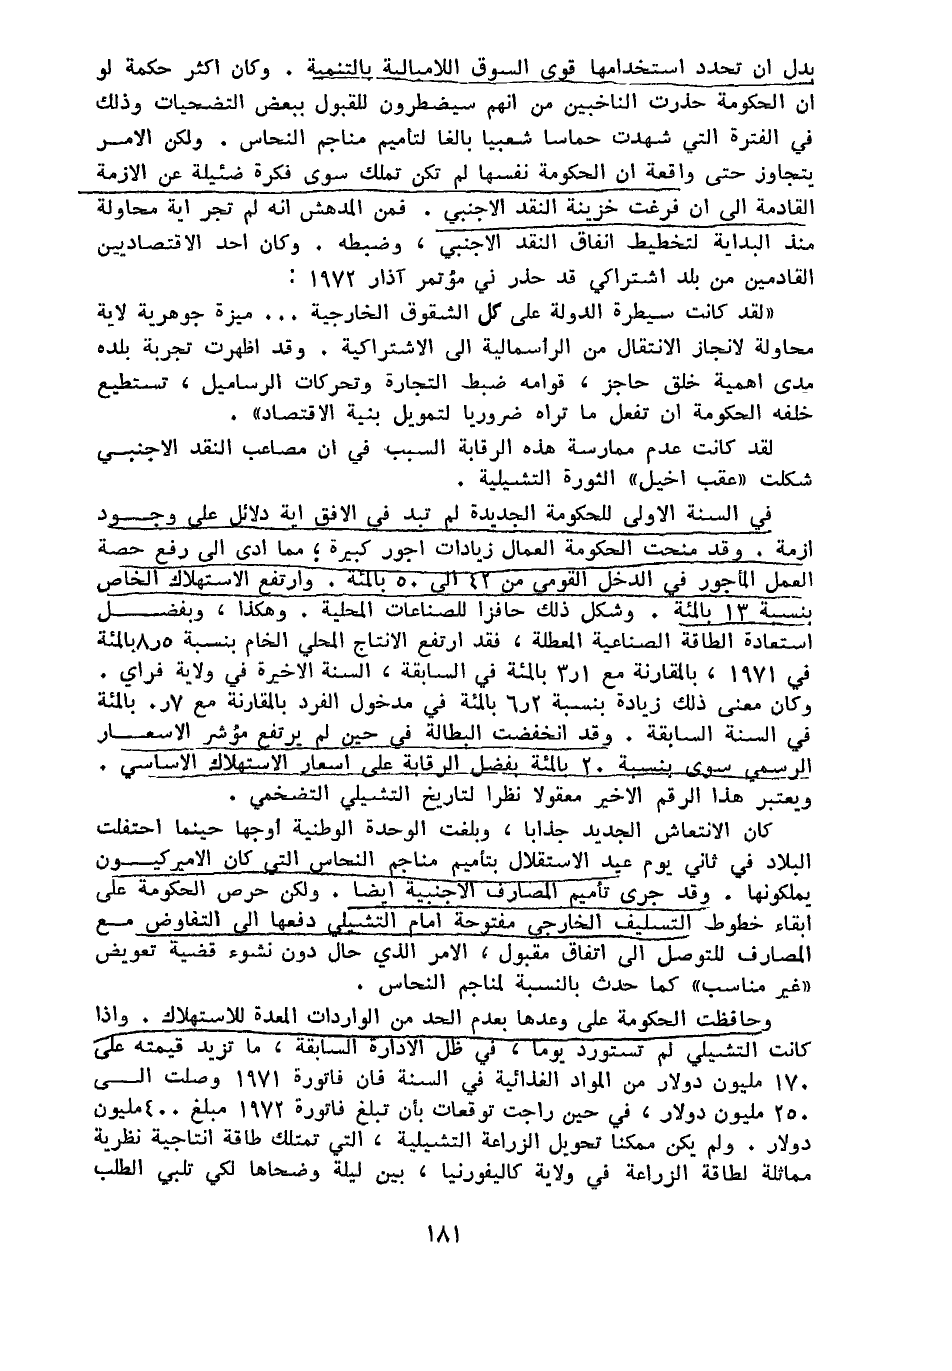 بدل ان تحدد استخدامها قوى السوق اللامبالية بالتنمية . وكان اكثر حكمة لو
ان الحكومة حذرت الناخبين من انهم سيضطرون للقبول ببعض التضحيات وذلك
في الفترة التي شهدت حماسا شعبيا بالغا لتأميم مناجم النحاس . ولكن الامر
يتجاوز حتى واقعة ان الحكومة نفسها لم تكن تملك سوى فكرة ضئيلة عن الازمة
القادمة الى ان فرغت خزينة النقد الاجنبي . فمن المدهش انه لم تجر اية محاولة
منذ البداية لتخطيط انفاق النقد الاجنبي ، وضبطه . وكان احد الاقتصاديين
القادمين من بلد اشتراكي قد حذر ني مؤتمر آذار ١٩٧٢ :
«لقد كانت سيطرة الدولة على كل الشقوق الخارجية ... ميزة جوهرية لاية
محاولة لانجاز الانتقال من الرأسمالية الى الاشتراكية . وقد اظهرت تجربة بلده
مدى اهمية خلق حاجز ، قوامه ضبط التجارة وتحركات الرساميل ، تستطيع
خلفه الحكومة ان تفعل ما تراه ضروريا لتمويل بنية الاقتصاد» .
لقد كانت عدم ممارسة هذه الرقابة السبب في ان مصاعب النقد الاجنبي
شكلت «عقب اخيل» الثورة التشيلية .
في السنة الاولى للحكومة الجديدة لم تبد في الافق اية دلائل على وجود
ازمة . وقد منحت الحكومة العمال زيادات اجور كبيرة ؛ مما ادى الى رفع حصة
العمل المأجور في الدخل القومي من ٤٢ الى ٥٠ بالمئة . وارتفع الاستهلاك الخاص
بنسبة ١٣ بالمئة . وشكل ذلك حافزا للصناعات المحلية . وهكذا ، وبفضل
استعادة الطاقة الصناعية المعطلة ، فقد ارتفع الانتاج المحلي الخام بنسبة ٥ر٨بالمئة
في ١٩٧١ ، بالمقارنة مع ١ر٣ بالمئة في السابقة ، السنة الاخيرة في ولاية فراي .
وكان معنى ذلك زيادة بنسبة ٢ر٦ بالمئة في مدخول الفرد بالمقارنة مع ٧ر٠ بالمئة
في السنة السابقة . وقد انخفضت البطالة في حين لم يرتفع مؤشر الاسعار
الرسمي سوى بنسبة ٢٠ بالمئة بفضل الرقابة على اسعار الاستهلاك الاساسي .
ويعتبر هذا الرقم الاخير معقولا نظرا لتاريخ التشيلي التضخمي .
كان الانتعاش الجديد جذابا ، وبلغت الوحدة الوطنية أوجها حينما احتفلت
البلاد في ثاني يوم عيد الاستقلال بتأميم مناجم النحاس التي كان الاميركيون
يملكونها . وقد جرى تأميم المصارف الاجنبية ايضا . ولكن حرص الحكومة على
ابقاء خطوط التسليف الخارجي مفتوحة امام التشيلي دفعها الى التفاوض مع
المصارف للتوصل الى اتفاق مقبول ، الامر الذي حال دون نشوء قضية تعويض
«غير مناسب» كما حدث بالنسبة لمناجم النحاس .
وحافظت الحكومة على وعدها بعدم الحد من الواردات المعدة للاستهلاك . واذا
كانت التشيلي لم تستورد يوما ، في ظل الادارة السابقة ، ما تزيد قيمته على
١٧٠ مليون دولار من المواد الغذائية في السنة فان فاتورة ١٩٧١ وصلت الى
٢٥٠ مليون دولار ، في حين راجت توقعات بأن تبلغ فاتورة ١٩٧٢ مبلغ ٤٠٠مليون
دولار . ولم يكن ممكنا تحويل الزراعة التشيلية ، التي تمتلك طاقة انتاجية نظرية
مماثلة لطاقة الزراعة في ولاية كاليفورنيا ، بين ليلة وضحاها لكي تلبي الطلب
١٨١